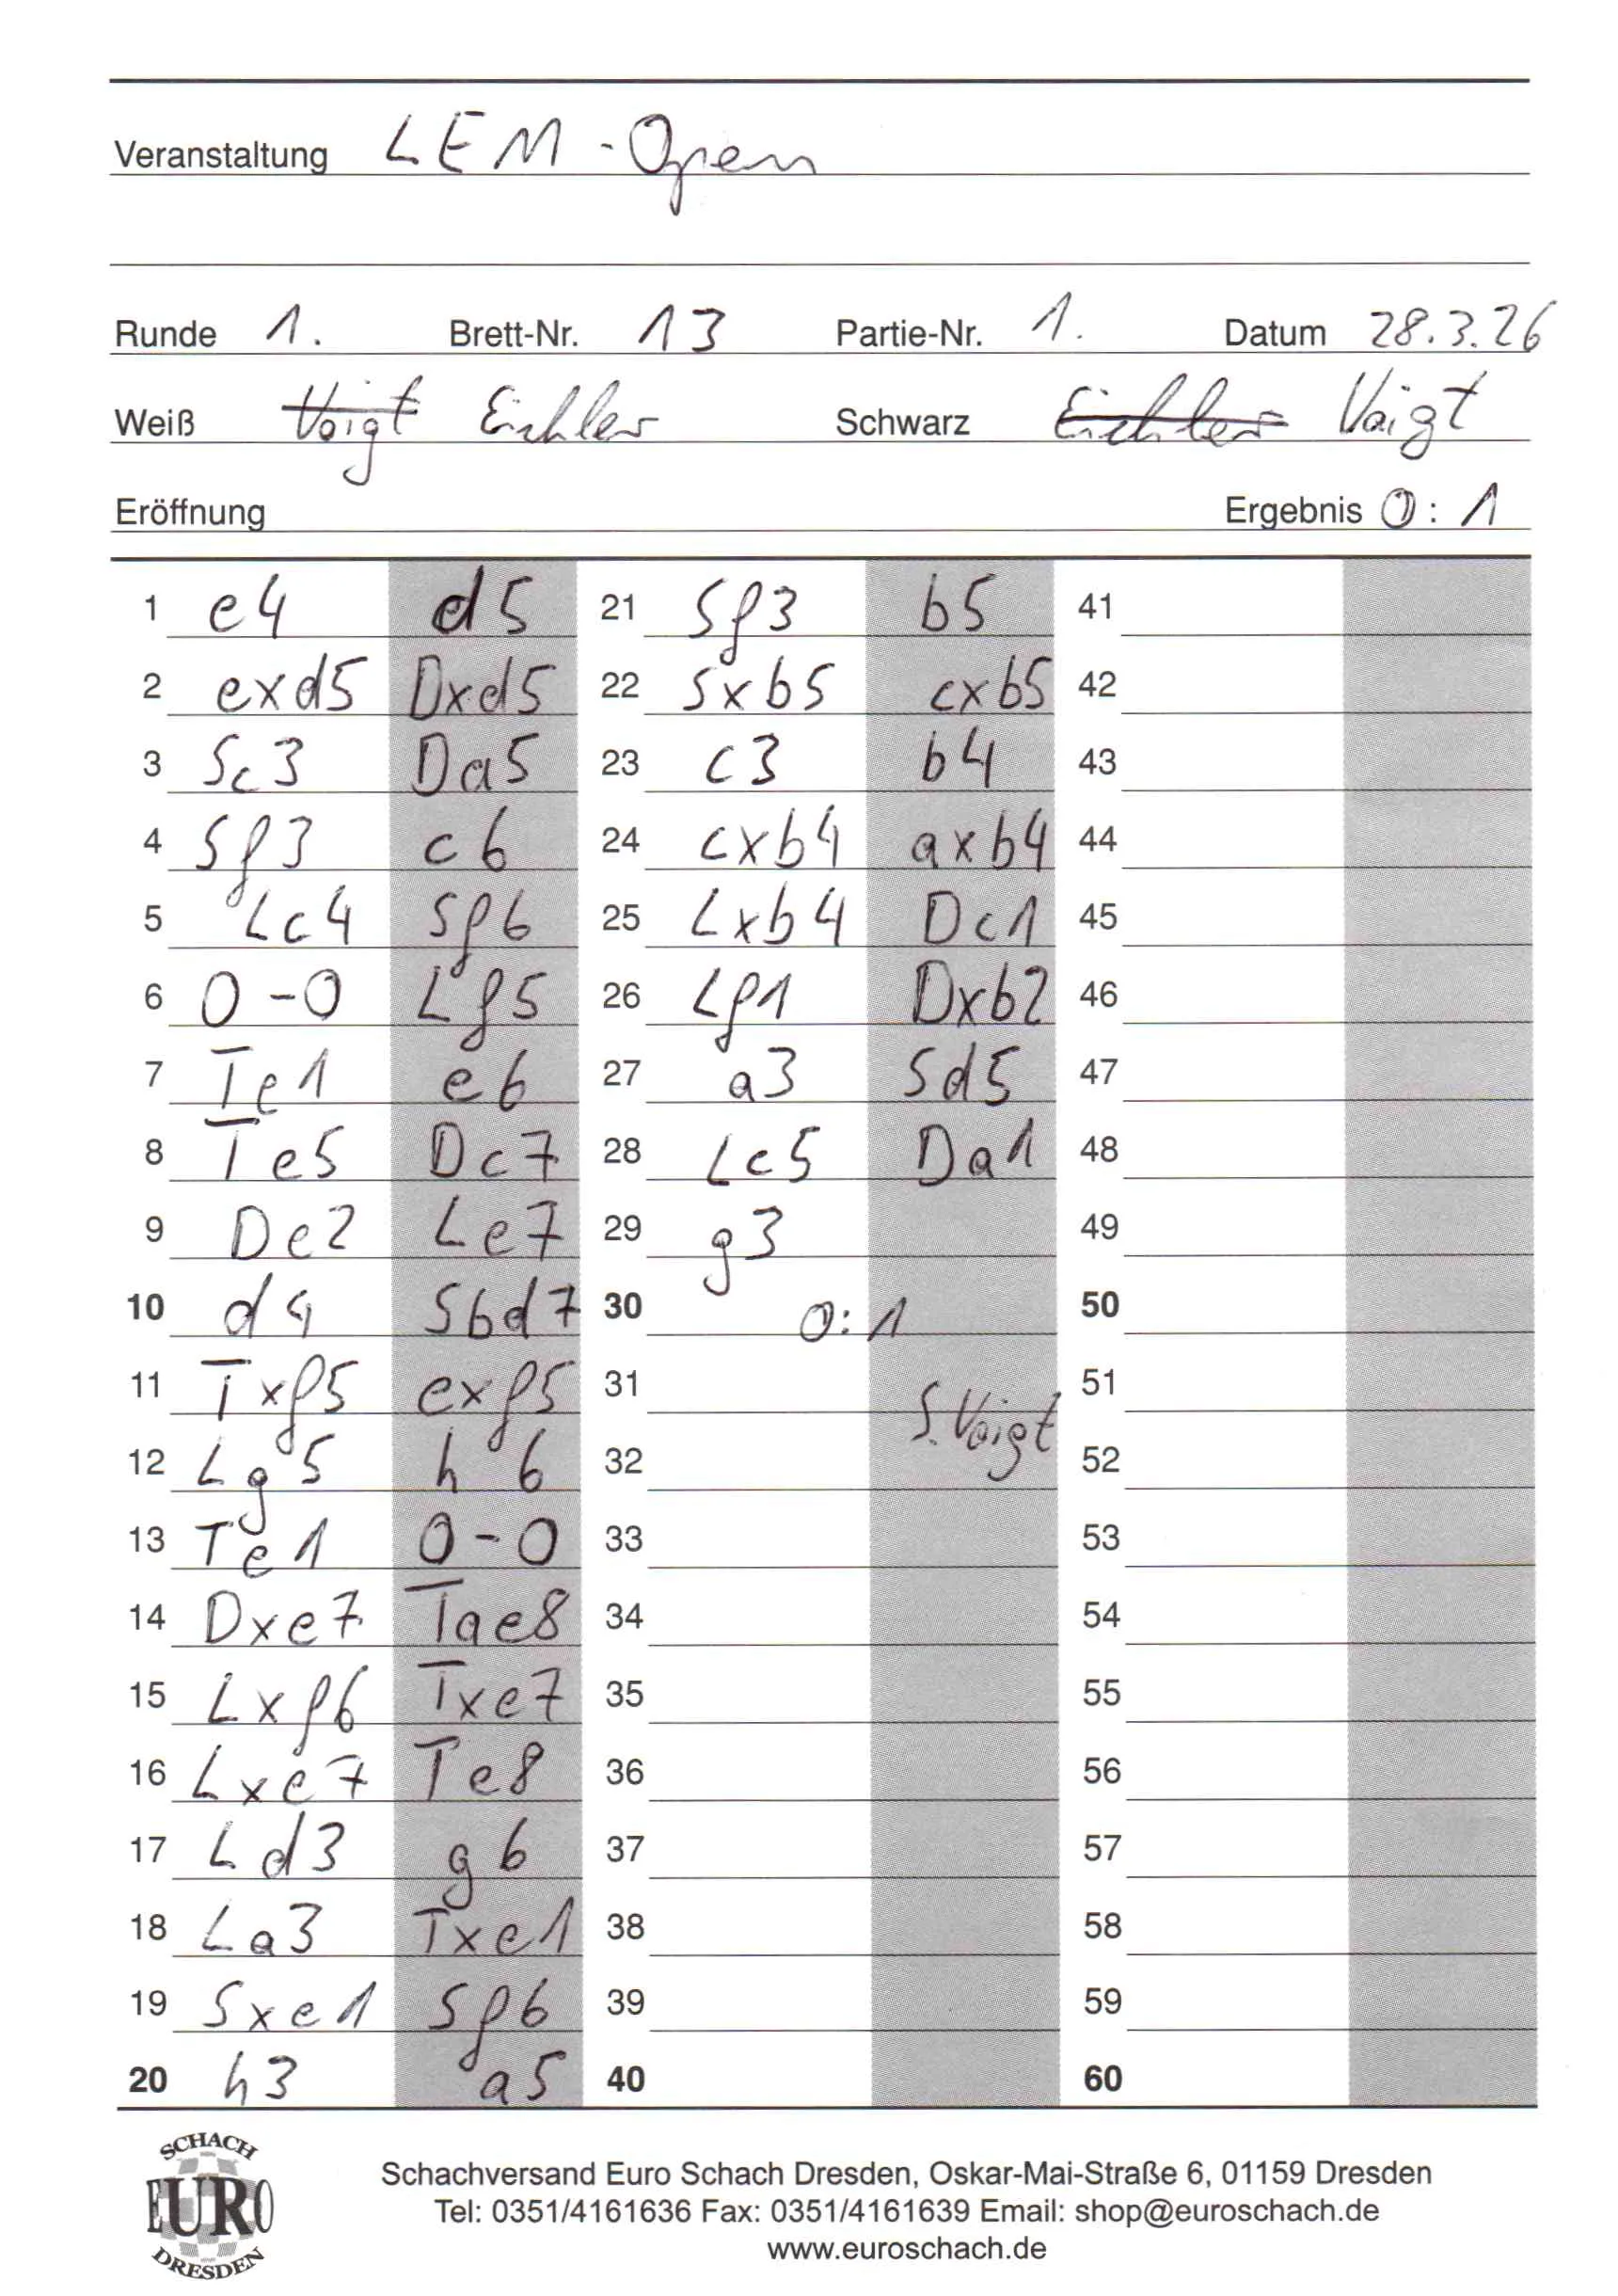 Veranstaltung LEM - Open
Runde 1. Brett-Nr. 13 Partie-Nr. 1. Datum 28.3.26
Weiß Voigt Eichler Schwarz Eichler Voigt
Eröffnung Ergebnis 0 : 1
1 e4 d5 21 Sf3 b5 41
2 exd5 Dxd5 22 Sxb5 cxb5 42
3 Sc3 Da5 23 c3 b4 43
4 Sf3 c6 24 cxb4 axb4 44
5 Lc4 Sf6 25 Lxb4 Dc1 45
6 0-0 Lf5 26 Lf1 Dxb2 46
7 Te1 e6 27 a3 Sd5 47
8 Te5 Dc7 28 Lc5 Da1 48
9 De2 Le7 29 g3 49
10 d4 Sbd7 30 0:1 50
11 Txf5 exf5 31 S. Voigt 51
12 Lg5 h6 32 52
13 Te1 0-0 33 53
14 Dxe7 Tae8 34 54
15 Lxf6 Txe7 35 55
16 Lxe7 Te8 36 56
17 Ld3 g6 37 57
18 La3 Txe1 38 58
19 Sxe1 Sf6 39 59
20 h3 a5 40 60
SCHACH
EURO
DRESDEN
Schachversand Euro Schach Dresden, Oskar-Mai-Straße 6, 01159 Dresden
Tel: 0351/4161636 Fax: 0351/4161639 Email: shop@euroschach.de
www.euroschach.de